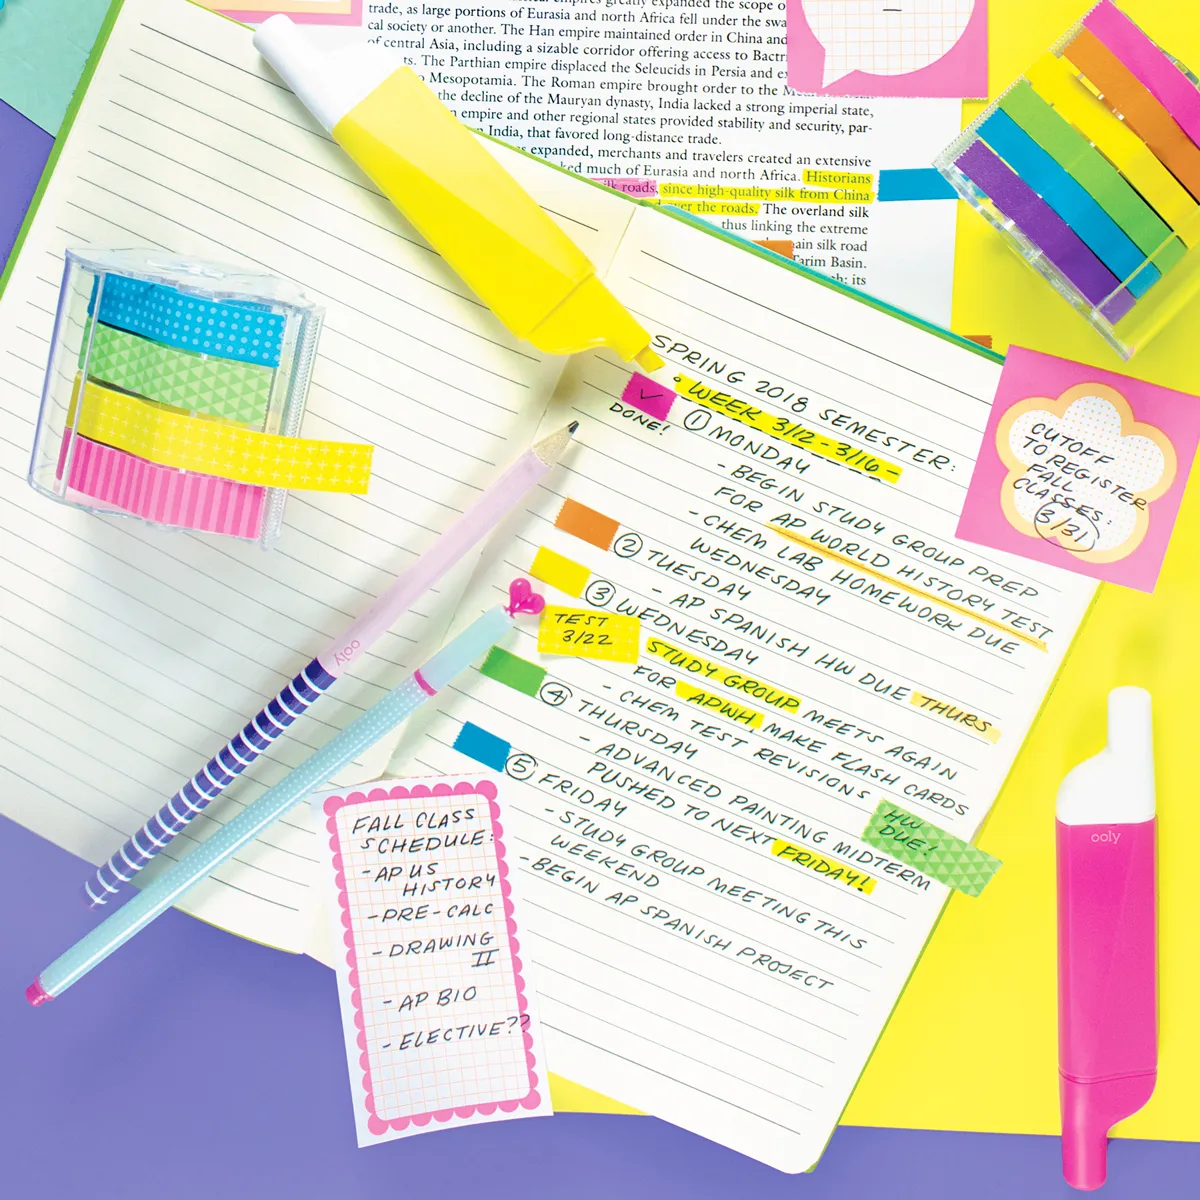 greatly expanded the scope o
trade, as large portions of Eurasia and north Africa fell under the swa
cal society or another. The Han empire maintained order in China and
of central Asia, including a sizable corridor offering access to Bactri
ts. The Parthian empire displaced the Seleucids in Persia and ex
Mesopotamia. The Roman empire brought order to the
the decline of the Mauryan dynasty, India lacked a strong imperial state,
empire and other regional states provided stability and security, par-
India, that favored long-distance trade.
expanded, merchants and travelers created an extensive
ked much of Eurasia and north Africa. Historians
roads, since high-quality silk from China
over the roads. The overland silk
thus linking the extreme
main silk road
Tarim Basin.
its
SPRING 2018 SEMESTER:
• WEEK 3/12 - 3/16 -
✓
DONE!
① MONDAY
- BEGIN STUDY GROUP PREP
FOR AP WORLD HISTORY TEST
- CHEM LAB HOMEWORK DUE
WEDNESDAY
② TUESDAY
- AP SPANISH HW DUE THURS
③ WEDNESDAY
TEST
3/22
STUDY GROUP MEETS AGAIN
FOR APWH, MAKE FLASH CARDS
- CHEM TEST REVISIONS
④ THURSDAY
- ADVANCED PAINTING MIDTERM
PUSHED TO NEXT FRIDAY!
HW
DUE!
⑤ FRIDAY
- STUDY GROUP MEETING THIS
WEEKEND
- BEGIN AP SPANISH PROJECT
CUTOFF
TO REGISTER
FALL
CLASSES:
3/31
FALL CLASS
SCHEDULE:
- AP US
HISTORY
- PRE-CALC
- DRAWING
II
- AP BIO
- ELECTIVE??
ooly
ooly